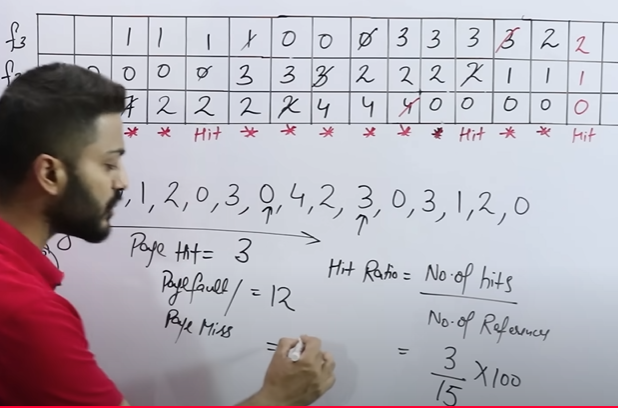 f3 1 1 1 1 0 0 0 3 3 3 3 2 2
0 0 0 3 3 3 2 2 2 2 1 1 1
2 2 2 2 4 4 4 0 0 0 0 0
* * Hit * * * * * * Hit * * Hit
, 1, 2, 0, 3, 0, 4, 2, 3, 0, 3, 1, 2, 0
Page Hit = 3
Page fault / = 12
Page Miss
=
Hit Ratio = No. of hits
No. of References
= 3
15 × 100